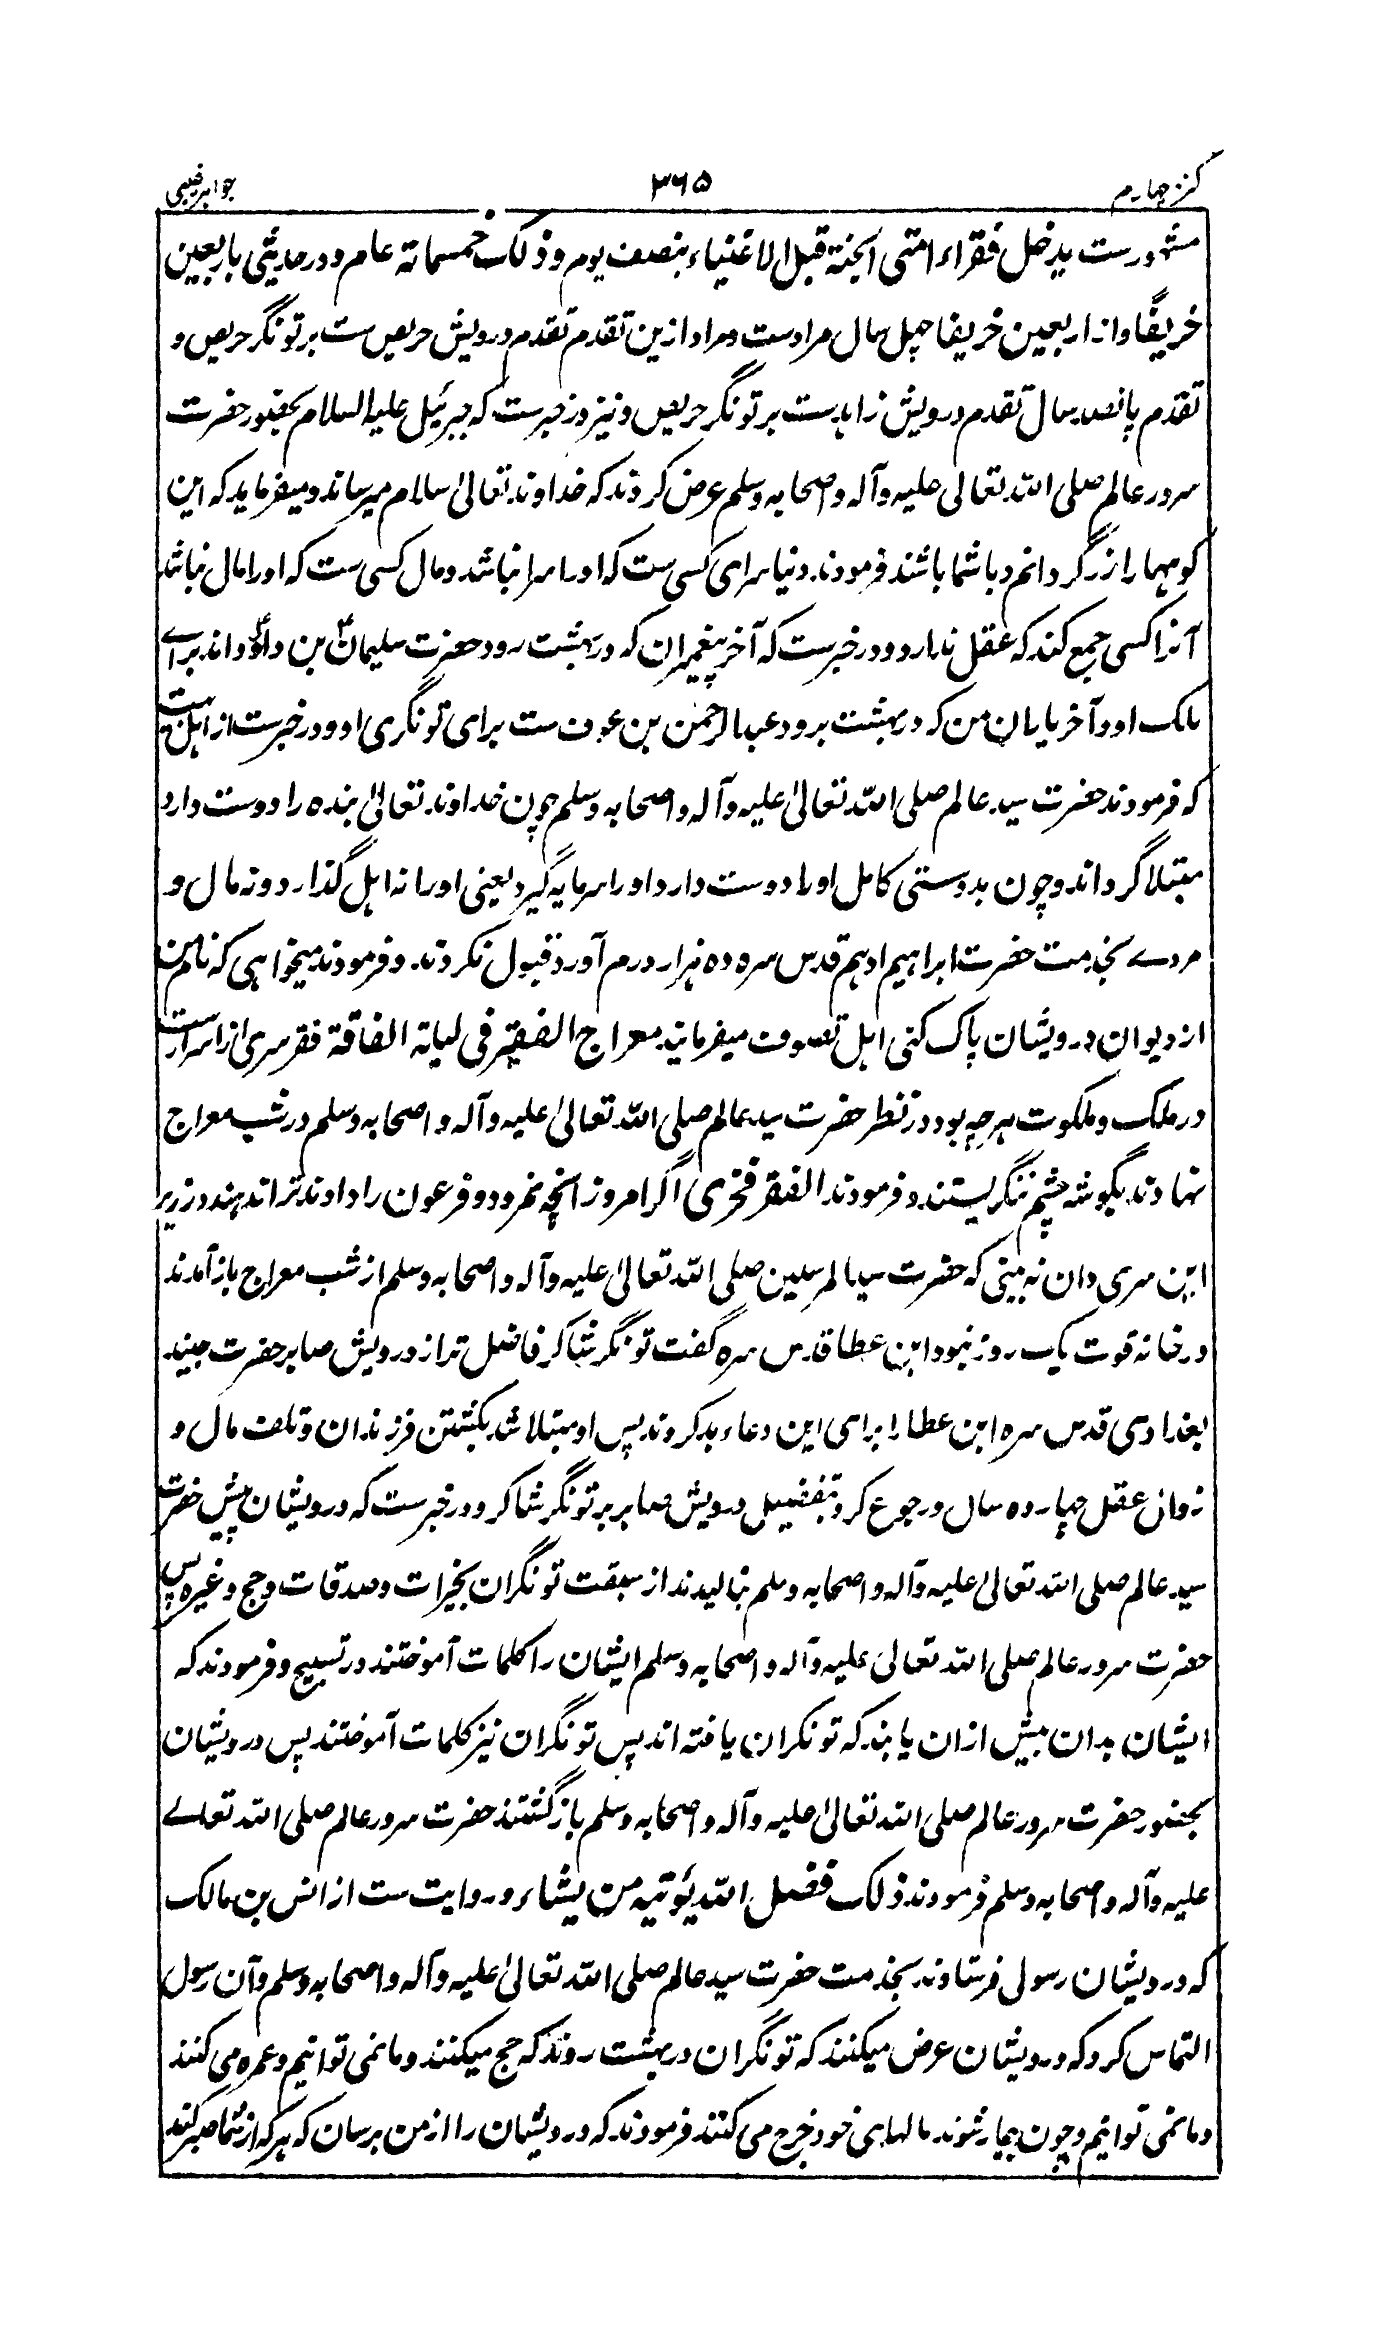 کنز چهارم
۳۶۵
جواهر غیبی
مشهورست یدخل فقراء امتی الجنة قبل الاغنیاء بنصف یوم و ذلک خمسمائة عام و در حدیثی باربعین
خریفًا و از اربعین خریفا چهل سال مرادست و مراد ازین تقدم تقدم درویش حریص ست بر تونگر حریص و
تقدم پانصد سال تقدم درویش زاہدست بر تونگر حریص و نیز در خبرست که جبرئیل علیه السلام بحضور حضرت
سرور عالم صلی الله تعالی علیه وآله واصحابه وسلم عرض کردند که خداوند تعالیٰ سلام میرساند و میفرماید که این
کوهها را زر گردانم و با شما باشند فرمودند دنیا سرای کسی ست که او را سرا نباشد و مال کسی ست که او را مال نباشد
آنرا کسی جمع کند که عقل ندارد و در خبرست که آخر پیغمبران که در بهشت رود حضرت سلیمانؑ بن داؤدؑ اند برای
ملک او و آخر یاران من که در بهشت برود عبدالرحمٰن بن عوف ست برای تونگری او و در خبرست از اهل بیت
که فرمودند حضرت سید عالم صلی الله تعالیٰ علیه وآله واصحابه وسلم چون خداوند تعالیٰ بنده را دوست دارد
مبتلا گرداند و چون بدوستی کامل او را دوست دارد او را سرمایه گیرد یعنی او را نه اہل گذارد و نه مال و
مردے بخدمت حضرت ابراہیم ادہم قدس سره ده ہزار درم آورد قبول نکردند و فرمودند میخواہی که نام من
از دیوان درویشان پاک کنی اہل تصوف میفرمایند معراج الفقیر فی لیلة الفاقة فقر سری از اسرارست
در ملک و ملکوت ہرچه بود در نظر حضرت سید عالم صلی الله تعالیٰ علیه وآله واصحابه وسلم در شب معراج
نهادند بگوشه چشم ننگریستند و فرمودند الفقر فخری اگر امروز آنچه نمرود و فرعون را دادند ترا ندہند در زیر
این سری دان نه بینی که حضرت سید المرسلین صلی الله تعالیٰ علیه وآله واصحابه وسلم از شب معراج باز آمدند
در خانه قوت یک روز نبود ابن عطا قدس سره گفت تونگر شاکر فاضل تر از درویش صابر حضرت جنید
بغدادی قدس سره ابن عطا را برای این دعاء بد کردند پس او مبتلا شد بکشتن فرزندان و تلف مال و
زوال عقل چهارده سال و رجوع کرد بتفضیل درویش صابر بر تونگر شاکر و در خبرست که درویشان پیش حضرت
سید عالم صلی الله تعالیٰ علیه وآله واصحابه وسلم بنالیدند از سبقت تونگران بخیرات و صدقات و حج و غیره پس
حضرت سرور عالم صلی الله تعالیٰ علیه وآله واصحابه وسلم ایشان را کلمات آموختند در تسبیح و فرمودند که
ایشان بدان بیش ازان یابند که تونگران یافته اند پس تونگران نیز کلمات آموختند پس درویشان
بحضور حضرت سرور عالم صلی الله تعالیٰ علیه وآله واصحابه وسلم باز گشتند حضرت سرور عالم صلی الله تعالے
علیه وآله واصحابه وسلم فرمودند ذلک فضل الله یؤتیه من یشاء و روایت ست از انس بن مالک
که درویشان رسولی فرستادند بخدمت حضرت سید عالم صلی الله تعالیٰ علیه وآله واصحابه وسلم و آن رسول
التماس کرد که درویشان عرض میکنند که تونگران در بهشت روند که حج میکنند و ما نمی توانیم و عمره می کنند
و ما نمی توانیم و چون بیمار شوند مالهای خود خرج می کنند فرمودند که درویشان را از من برسان که ہر که از شما صبر کند